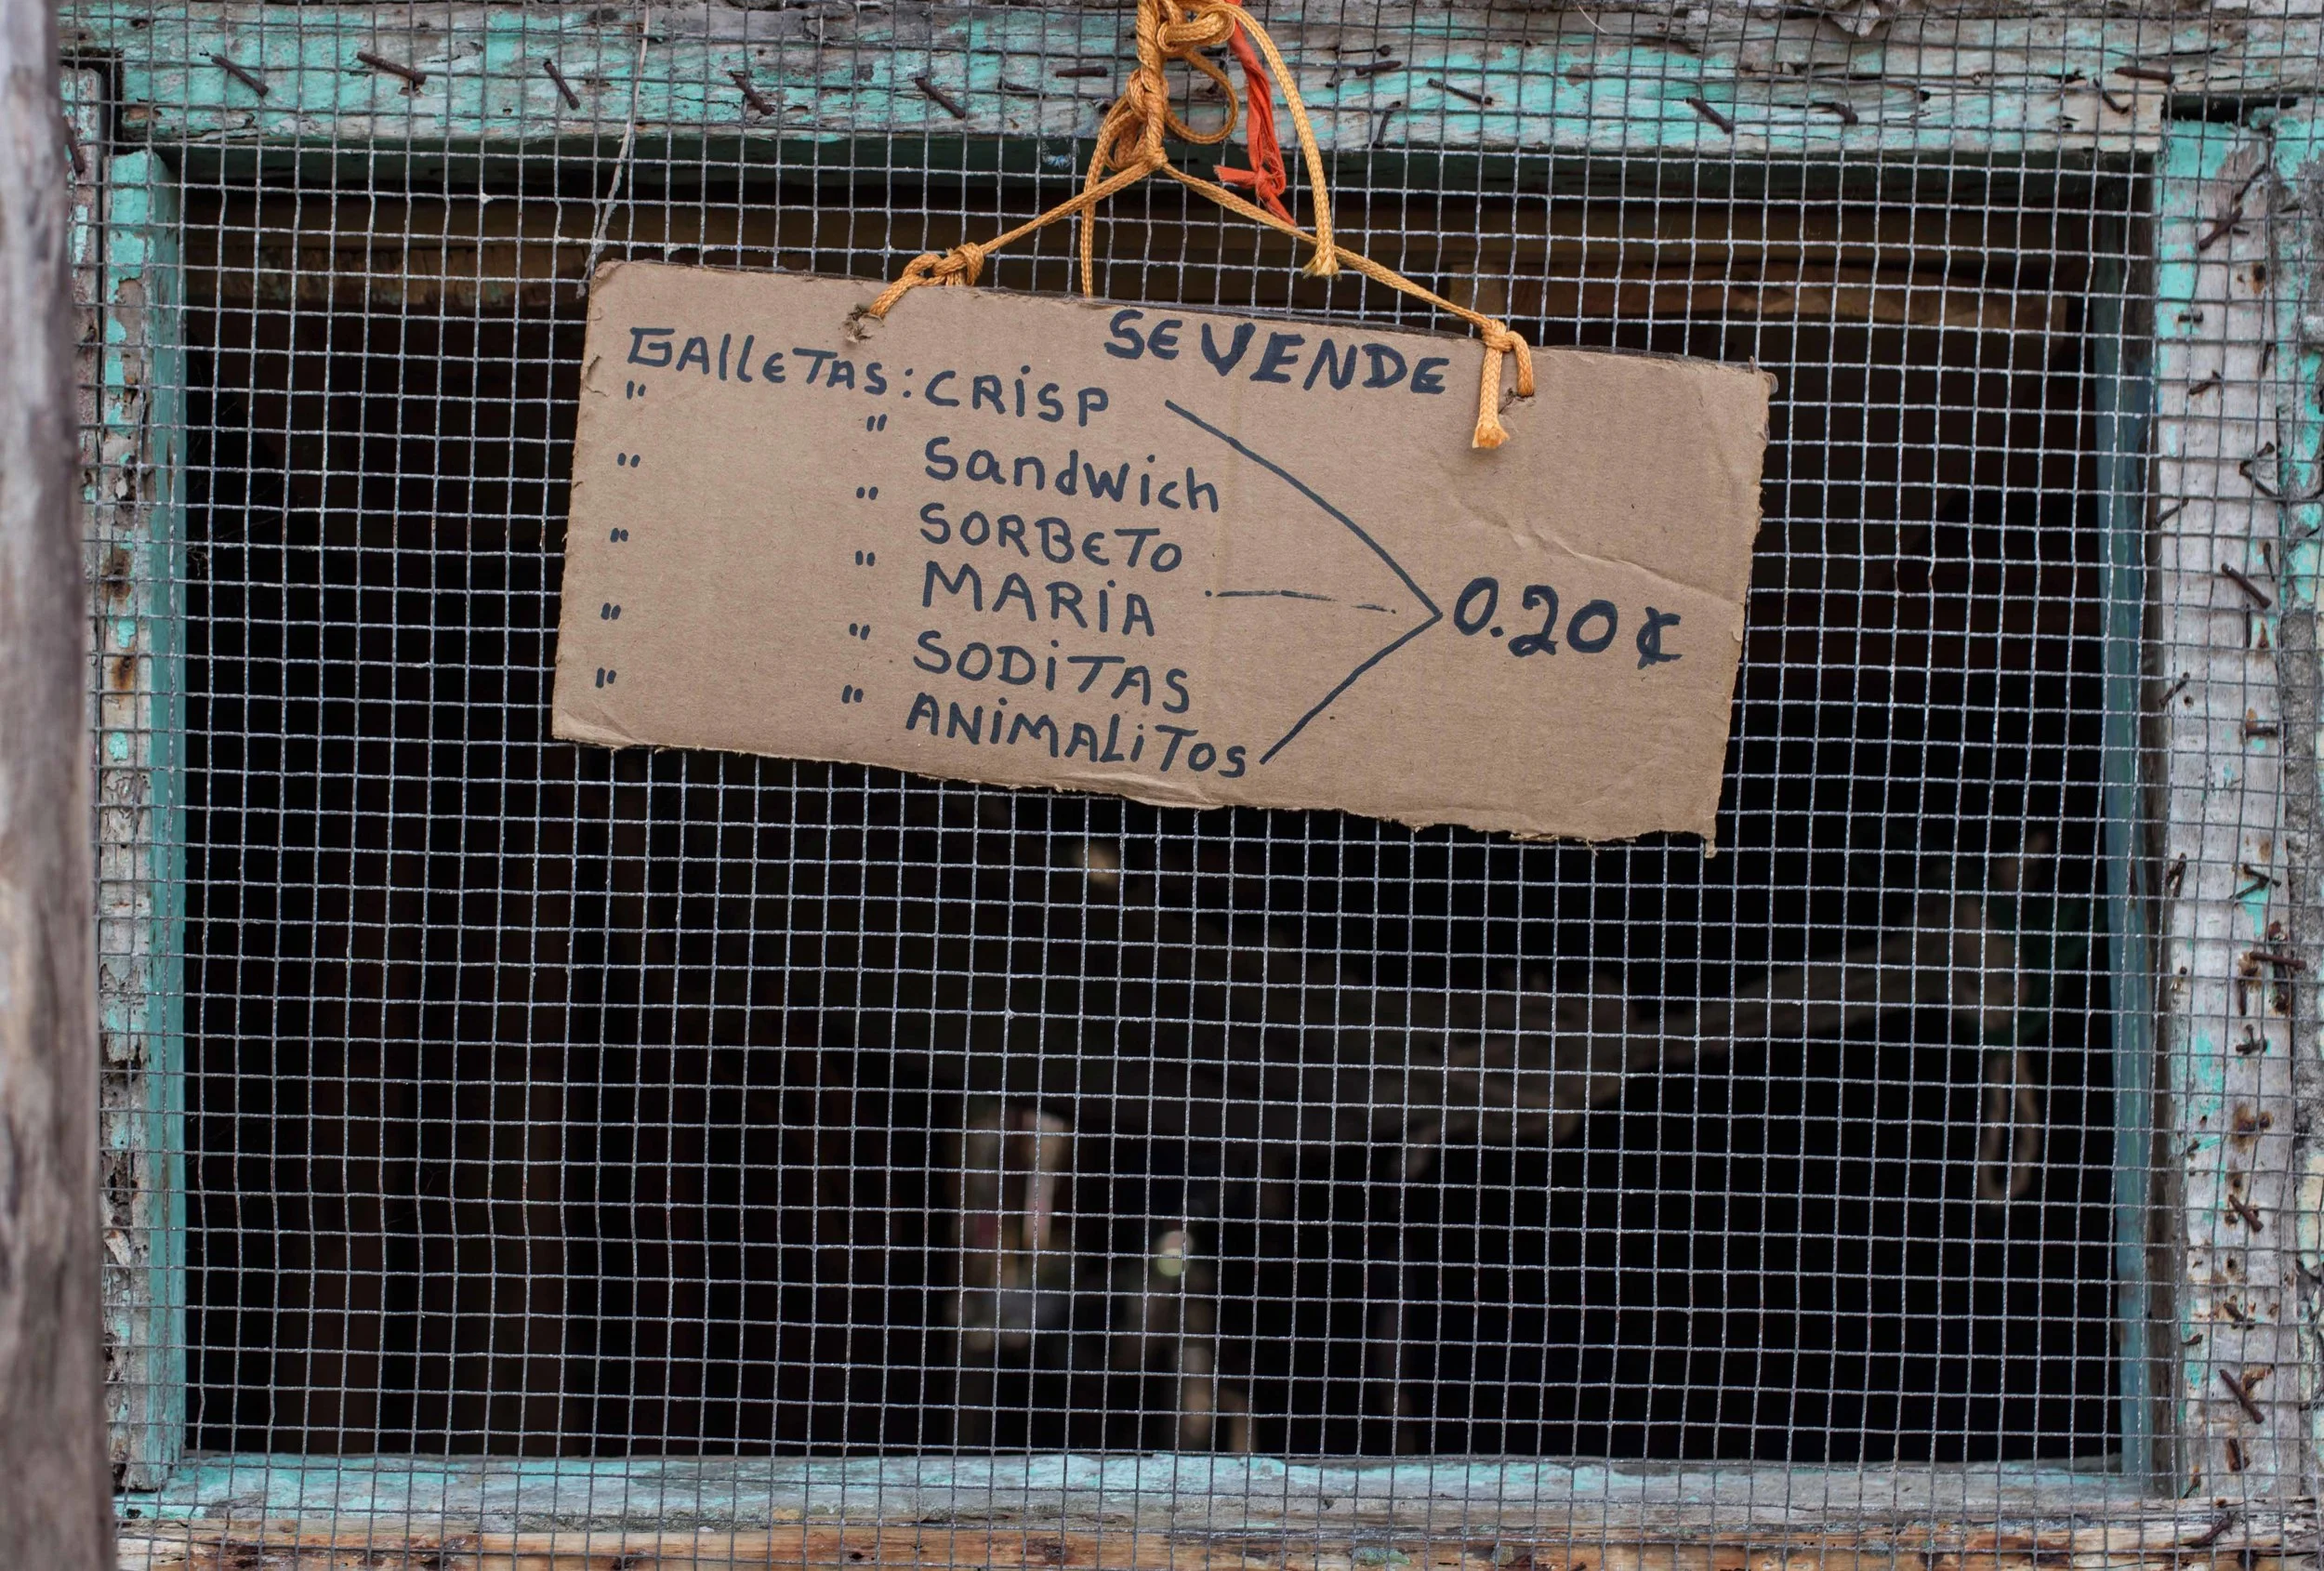 SE VENDE
GALLETAS: CRISP
" " Sandwich
" " SORBETO
" " MARIA
" " SODITAS
" " ANIMALITOS
0.20 ¢